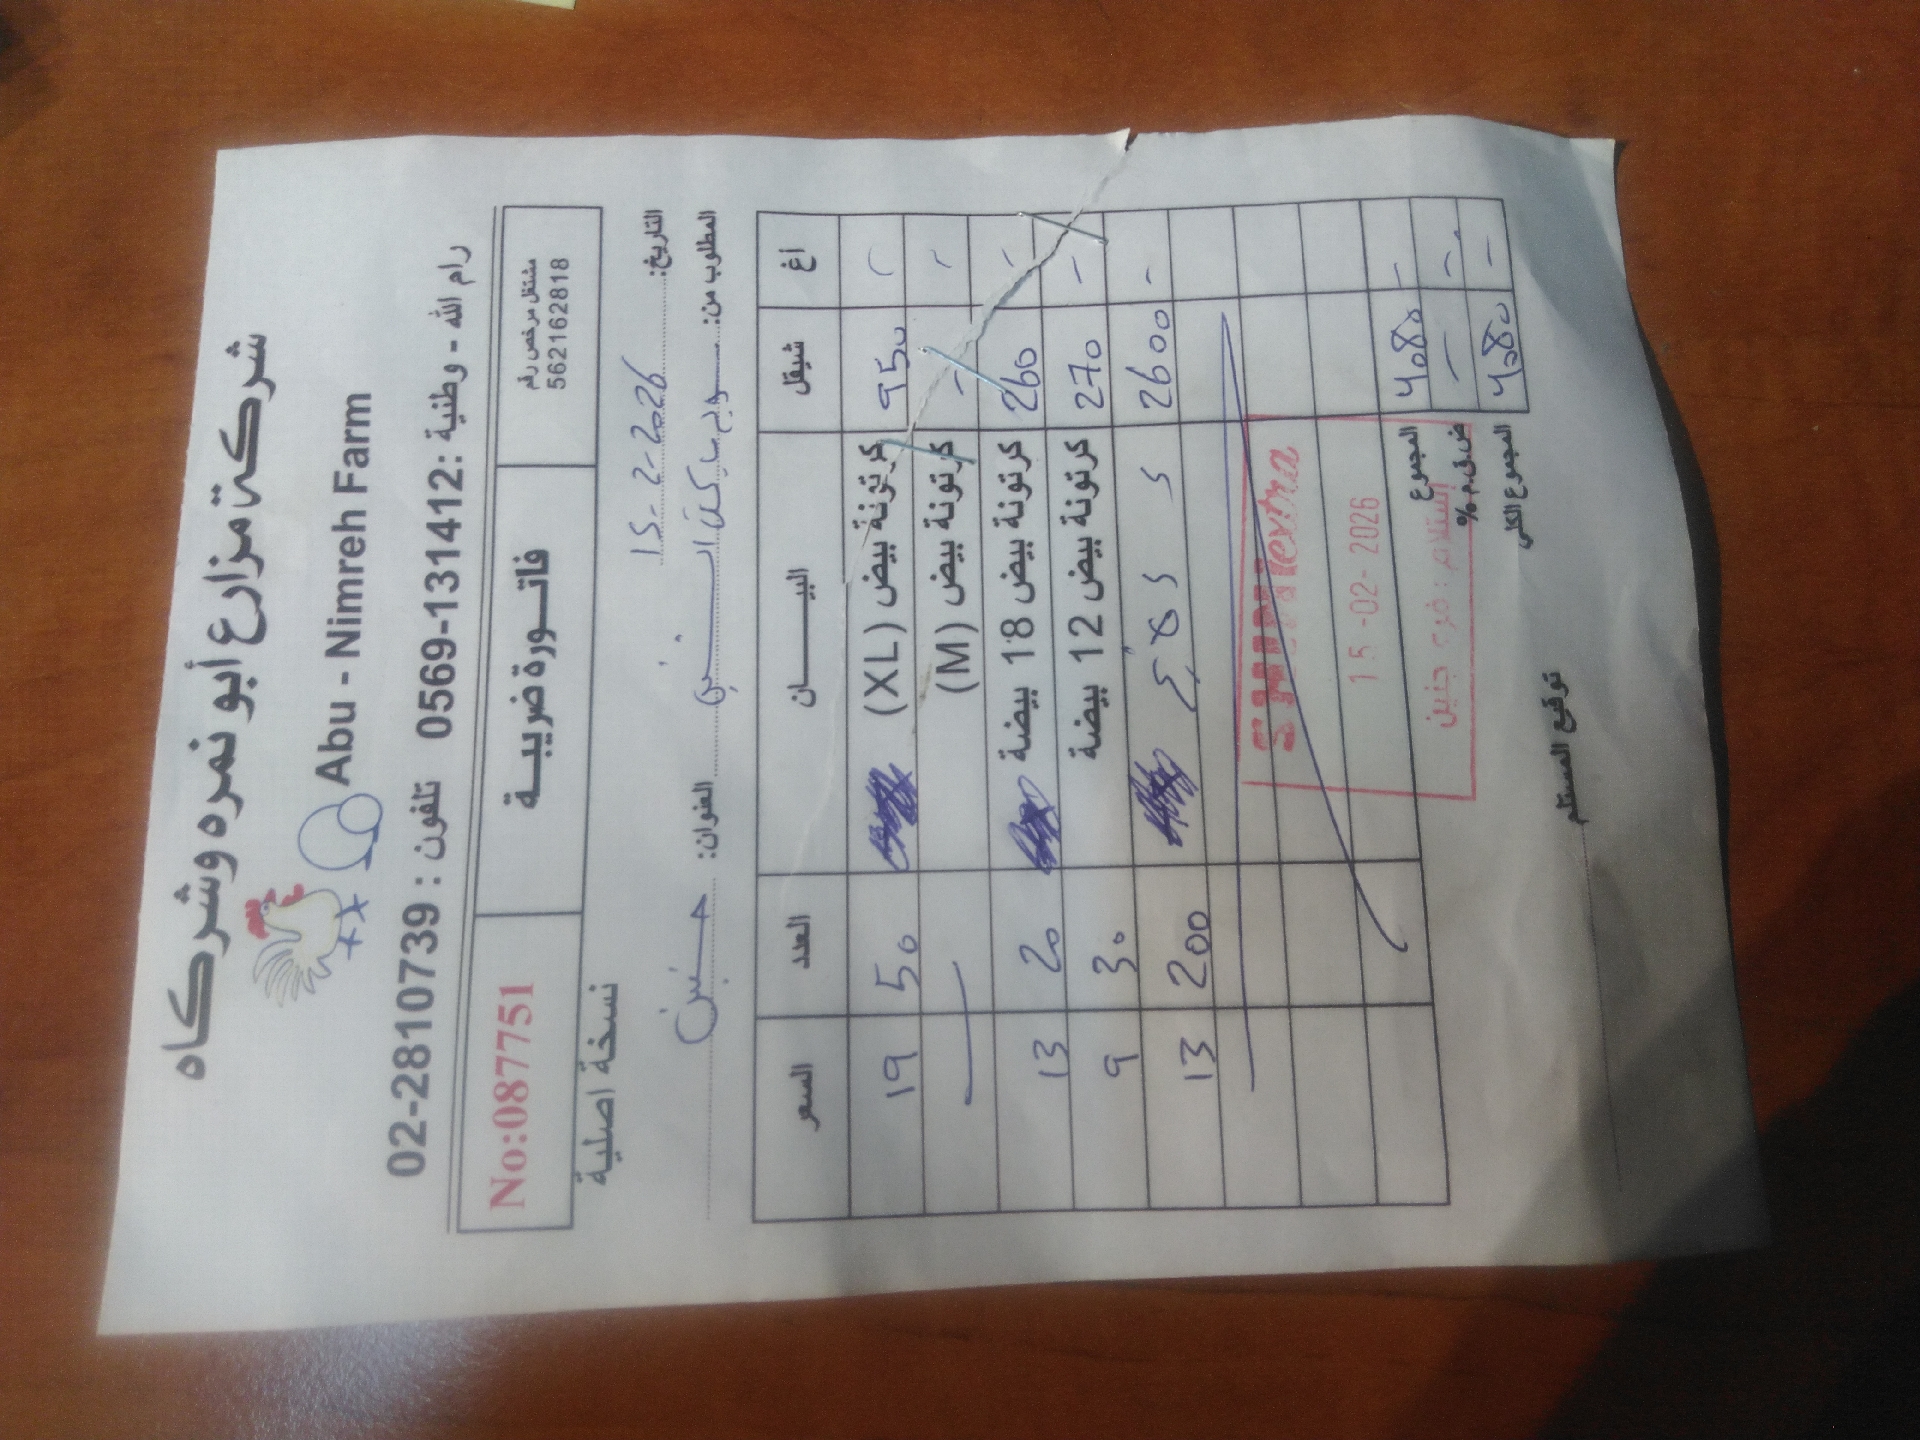 شركة مزارع أبو نمره وشركاه
Abu - Nimreh Farm
رام الله - وطنية : 0569-131412 تلفون : 02-2810739
مشتغل مرخص رقم
562162818
فاتورة ضريبية
No:087751
نسخة اصلية
التاريخ: 15-2-2026
المطلوب من: العنوان: جنين
السعر العدد البيان شيقل أغ
19 50 كرتونة بيض (XL) 950 -
كرتونة بيض (M) - -
13 20 كرتونة بيض 18 بيضة 260 -
9 30 كرتونة بيض 12 بيضة 270 -
13 200 2600 -
SHINI extra
15-02-2026
إستلام : فرع جنين
المجموع 4080 -
ض.ق.م % - -
المجموع الكلي 4080 -
توقيع المستلم